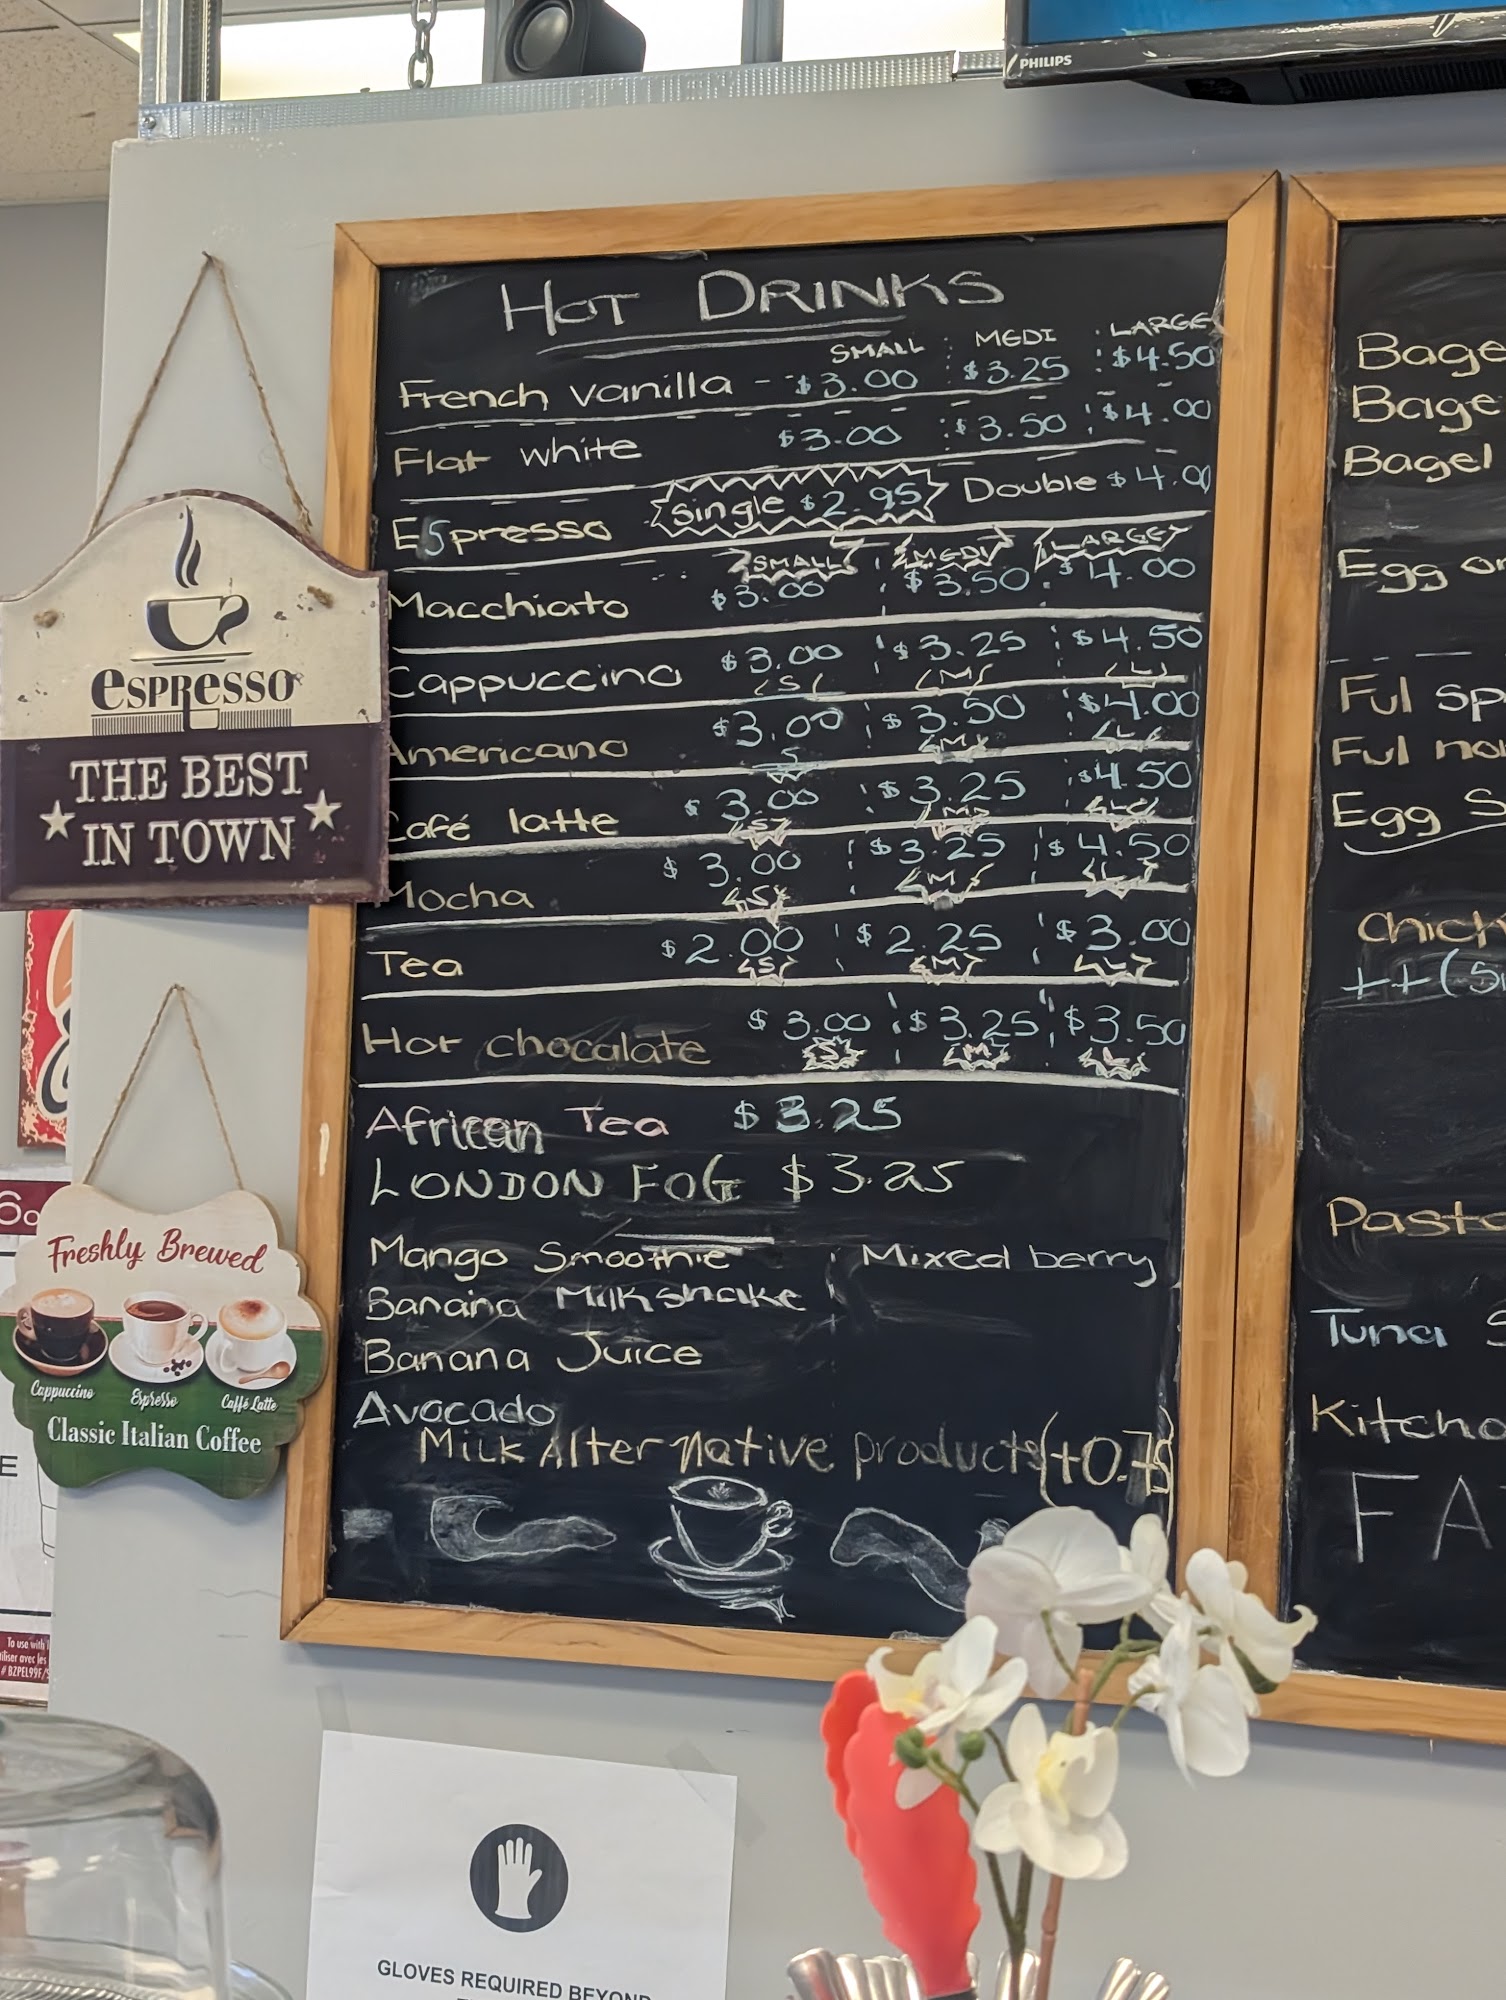 PHILIPS
HOT DRINKS
SMALL MEDI LARGE
French vanilla - $3.00 $3.25 $4.50
Flat white $3.00 $3.50 $4.00
Espresso Single $2.95 Double $4.00
SMALL MEDI LARGE
Macchiato $3.00 $3.50 $4.00
Cappuccino $3.00 $3.25 $4.50
S M L
Americano $3.00 $3.50 $4.00
S M L
Café latte $3.00 $3.25 $4.50
S M L
Mocha $3.00 $3.25 $4.50
S M L
Tea $2.00 $2.25 $3.00
S M L
Hot chocalate $3.00 $3.25 $3.50
S M L
African Tea $3.25
LONDON FOG $3.25
Mango Smoothie Mixed berry
Banana Milkshake
Banana Juice
Avocado
Milk Alternative products (+0.75)
espresso
THE BEST
IN TOWN
Freshly Brewed
Cappuccino Espresso Caffé Latte
Classic Italian Coffee
Bage
Bage
Bagel
Egg or
Ful sp
Ful no
Egg S
Chick
++(Si
Pasta
Tuna S
Kitcho
FA
To use with
tiliser avec les
# BZPEL99F/S
GLOVES REQUIRED BEYOND